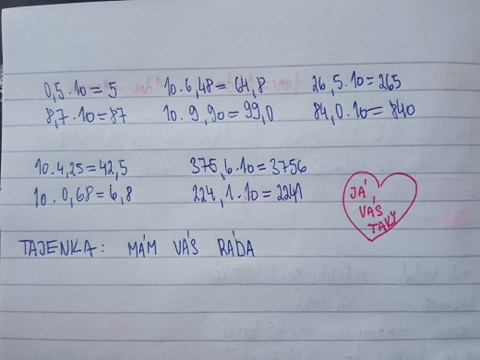 0,5 · 10 = 5   10 · 6,48 = 64,8   26,5 · 10 = 265
8,7 · 10 = 87   10 · 9,90 = 99,0   84,0 · 10 = 840
10 · 4,25 = 42,5   375,6 · 10 = 3756
10 · 0,68 = 6,8   224,1 · 10 = 2241
JÁ
VÁS
TAKY
TAJENKA: MÁM VÁS RÁDA